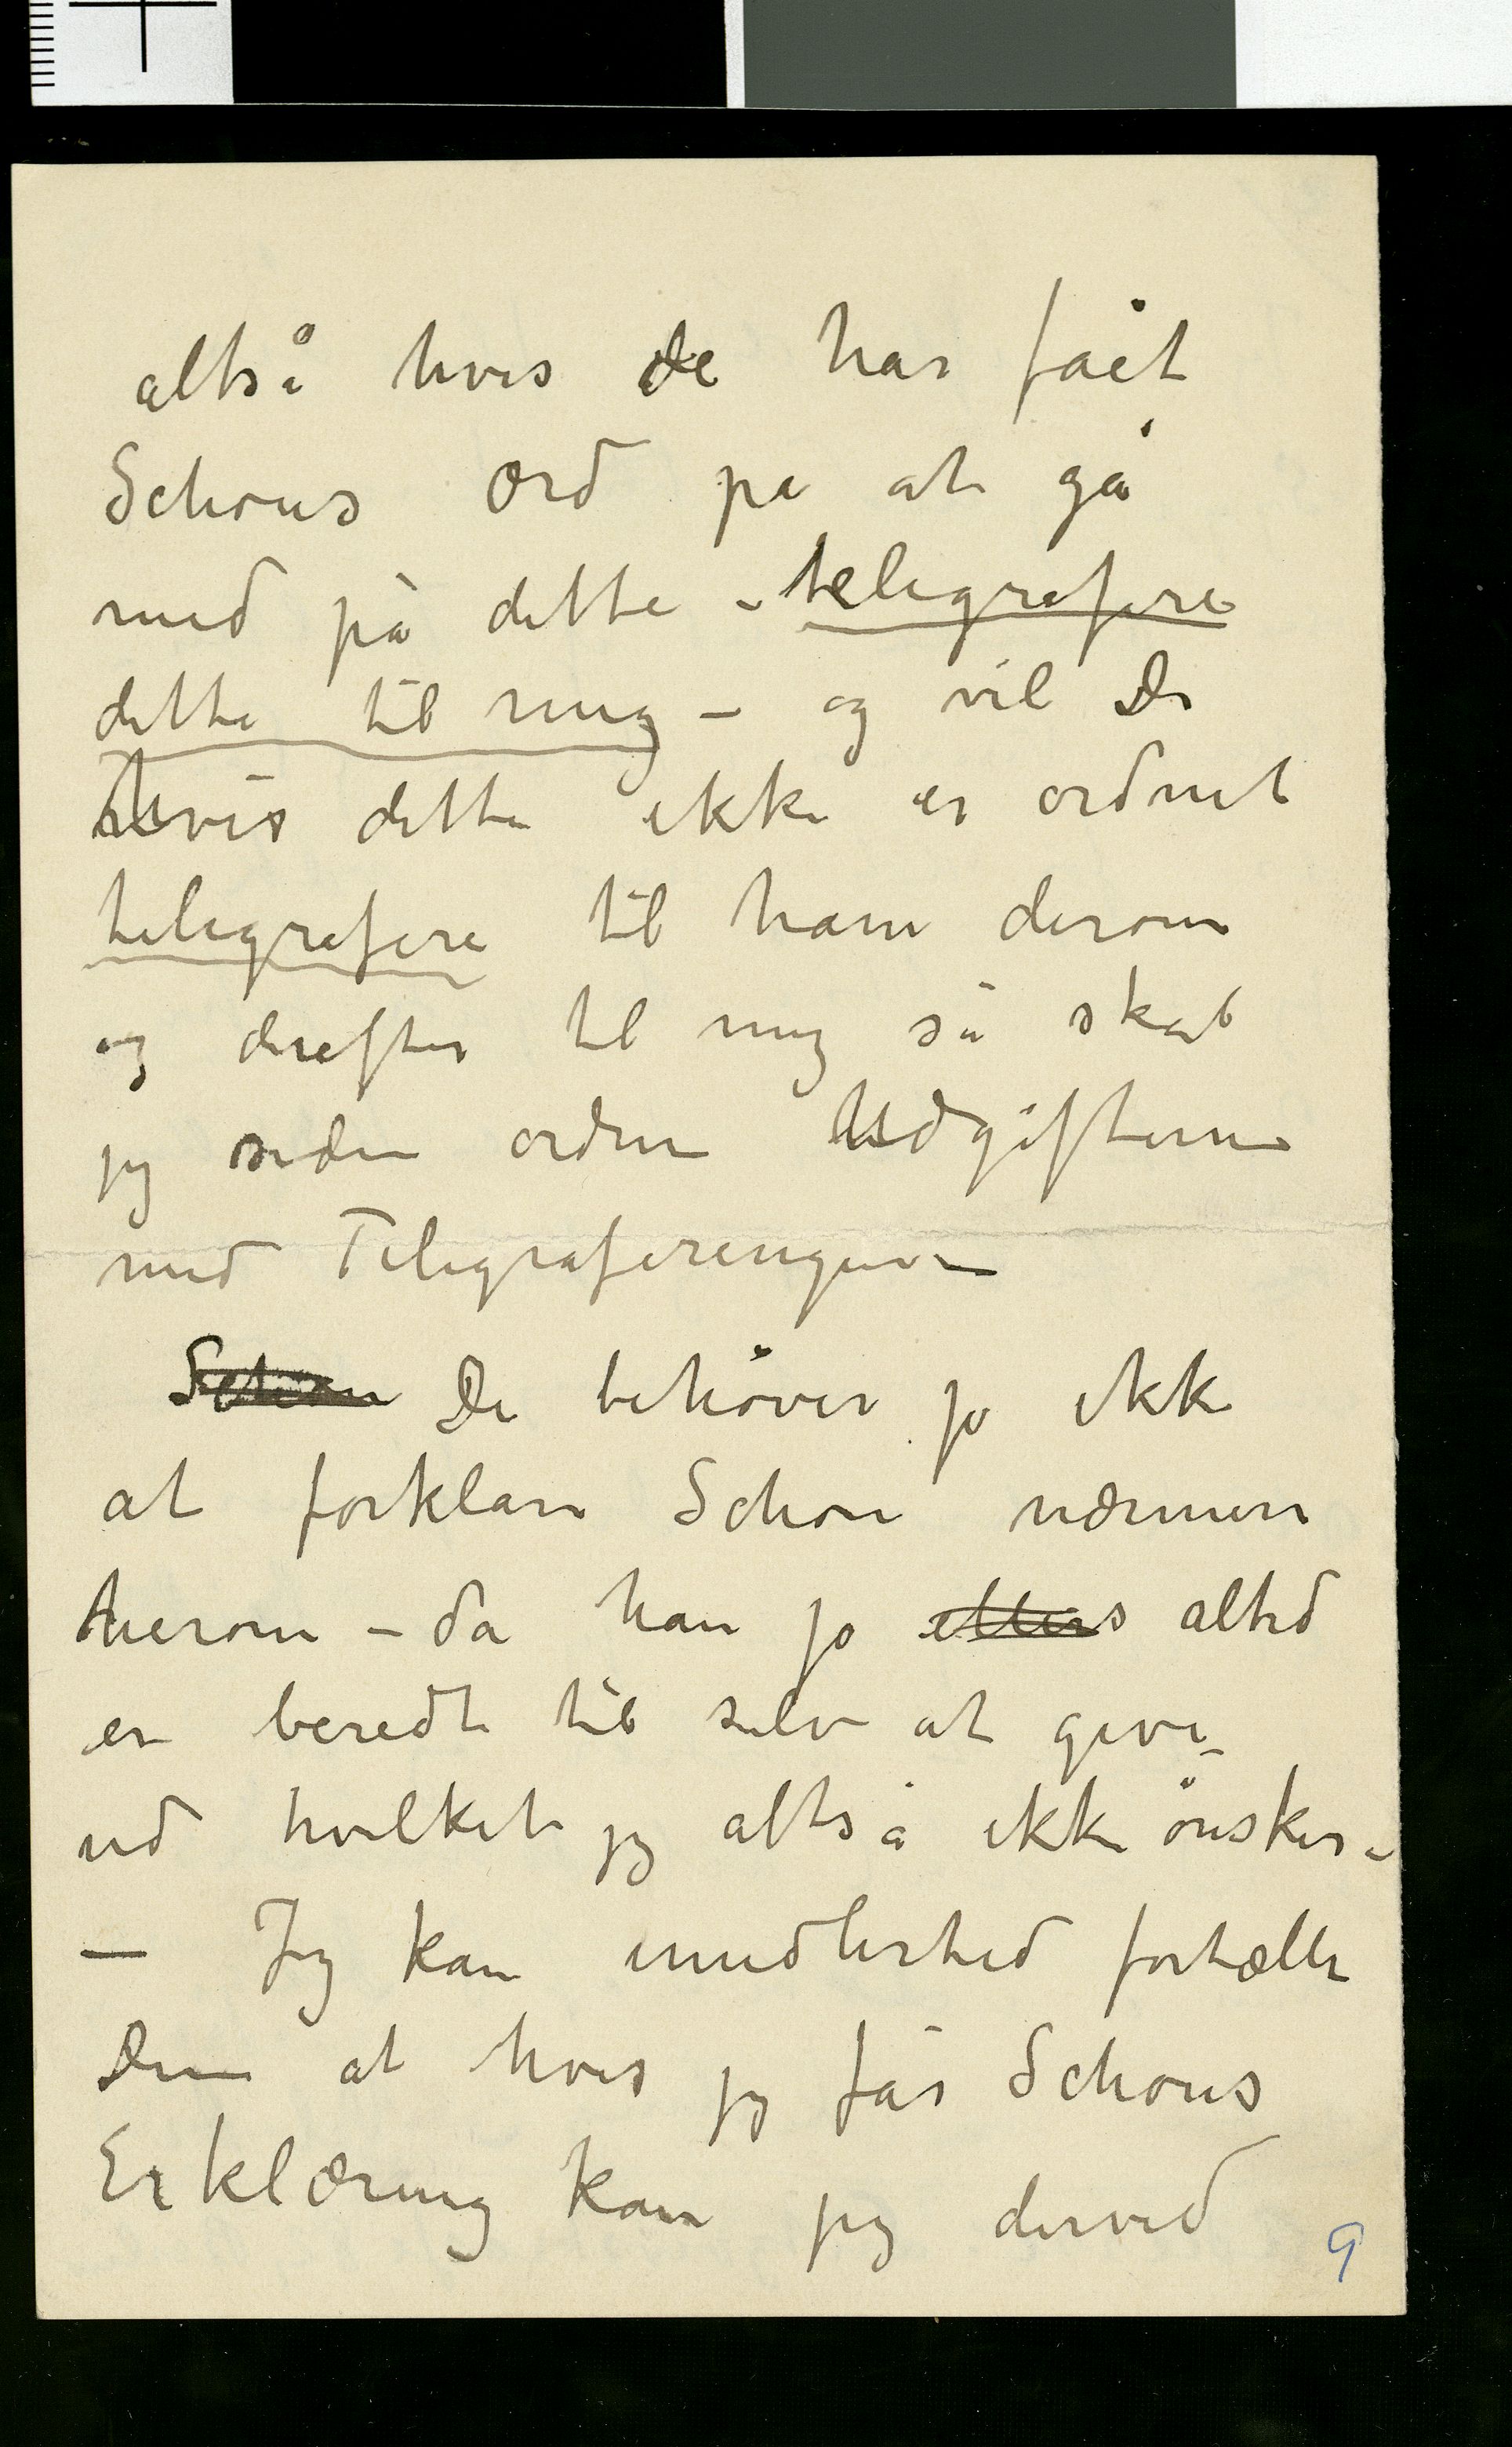 altså hvis de har fået
Schous ord på at gå
med på dette – telegrafere
dette til mig – og vil De
hvis dette ikke er ordnet
telegrafere til ham derom
og derefter til mig så skal
jeg siden ordne Udgifterne
med Telegraferingen –
Schou De behøver jo ikke
at forklare Schou nærmere
herom – da han jo ellers altid
er beredt til selv at give –
ud hvilket jeg altså ikke ønsker –
– Jeg kan imidlertid fortælle
Dem at hvis jeg får Schous
Erklæring kan jeg derved
9